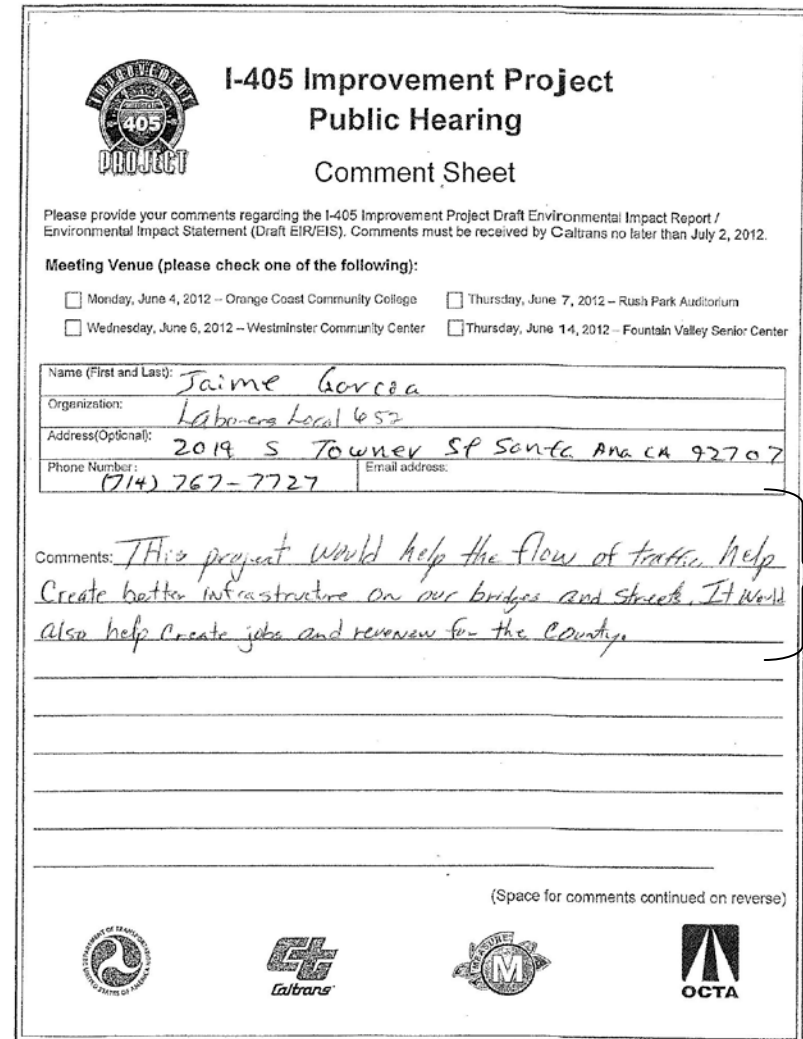 IMPROVEMENT
405
PROJECT
I-405 Improvement Project
Public Hearing
Comment Sheet
Please provide your comments regarding the I-405 Improvement Project Draft Environmental Impact Report /
Environmental Impact Statement (Draft EIR/EIS). Comments must be received by Caltrans no later than July 2, 2012.
Meeting Venue (please check one of the following):
Monday, June 4, 2012 – Orange Coast Community College
Thursday, June 7, 2012 – Rush Park Auditorium
Wednesday, June 6, 2012 – Westminster Community Center
Thursday, June 14, 2012 – Fountain Valley Senior Center
Name (First and Last): Jaime Garcia
Organization: Laborers Local 652
Address(Optional): 2019 S Towner St Santa Ana CA 92707
Phone Number: (714) 767-7727
Email address:
Comments: THis project would help the flow of traffic, help
Create better infrastructure on our bridges and streets. It would
also help Create jobs and revenew for the County.
(Space for comments continued on reverse)
DEPARTMENT OF TRANSPORTATION
UNITED STATES OF AMERICA
Caltrans
MEASURE
M
OCTA